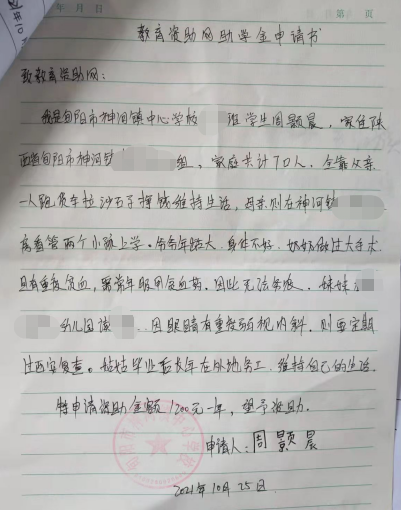 年 月 日 第 页
教育资助网助学金申请书
致教育资助网：
我是旬阳市神河镇中心学校 班学生周颢晨，家住陕
西省旬阳市神河镇 组，家庭共计7口人，全靠父亲
一人跑货车拉沙石子挣钱维持生活，母亲则在神河镇
高看管两个小孩上学。爷爷年踏大，身体不好，奶奶做过大手术
且有重度贫血，需常年服用贫血药。因此无法务农，妹妹
幼儿园读 ，因眼睛有重度弱视内斜，则要定期
过西安复查。姑姑毕业后长年在外地务工，维持自己的生活。
特申请资助金额1200元一年，望予资助。
申请人：周颢晨
2021年10月25日